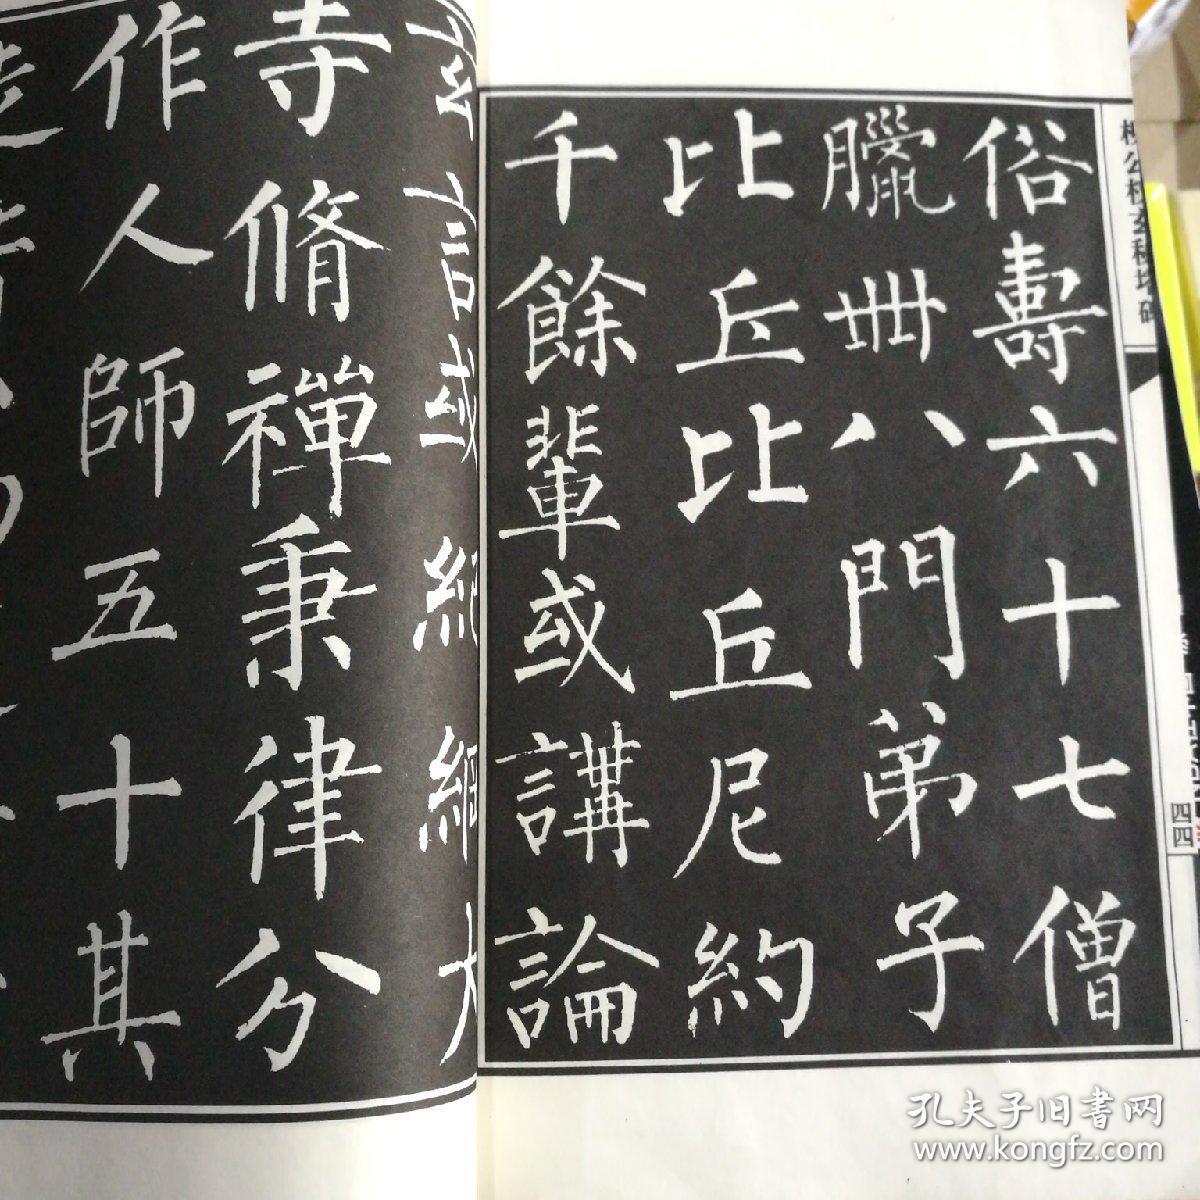 柳公權玄秘塔碑
四四
俗壽六十七僧
臘卌八門弟子
比丘比丘尼約
千餘輩或講論
玄言或紀綱大
寺脩禪秉律分
作人師五十其
孔夫子旧书网
www.kongfz.com